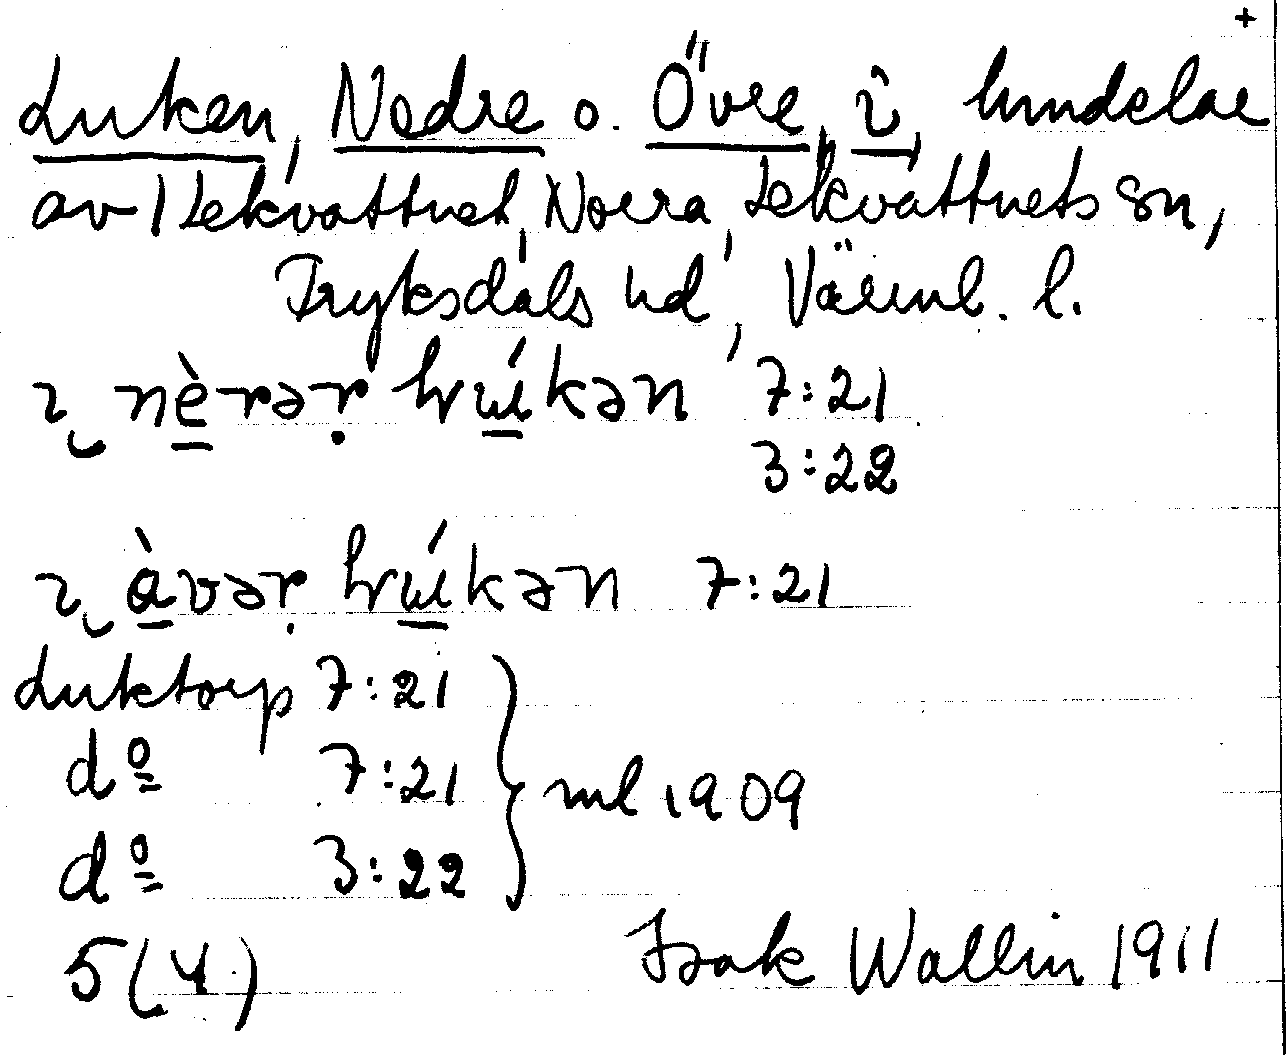 +
Luken, Nedre o. Övre, i, hmndelar
av 1 Lekvattnet, Norra, Lekvattnets sn,
Fryksdals hd, Värml. l.
ı nè̱rər̥ lwú̱kən 7:21
3:22
ı à̱vər̥ lwú̱kən 7:21
Luktorp 7:21
dº 7:21
dº 3:22
ml 1909
5 (4)
Isak Wallin 1911